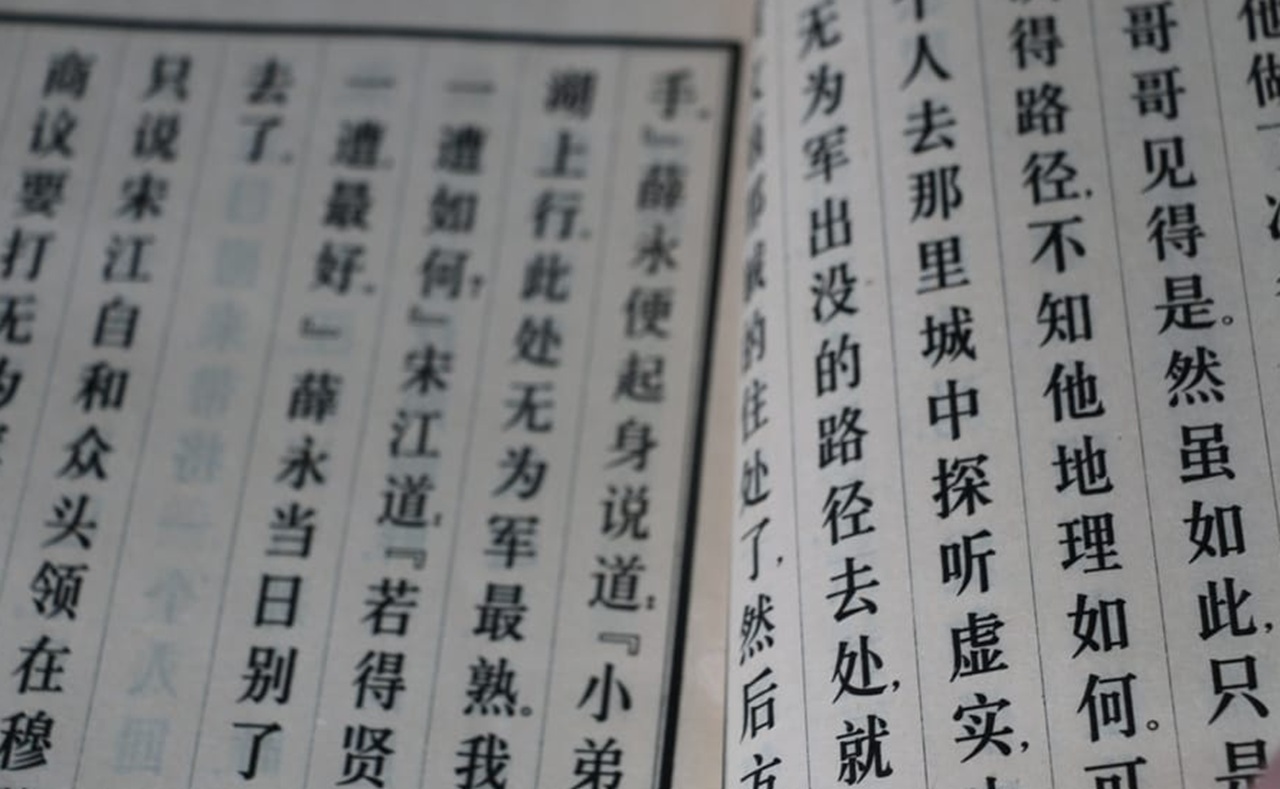 他做
哥哥见得是。然虽如此,只是
得路径,不知他地理如何。可
个人去那里城中探听虚实,
无为军出没的路径去处,就
城的住处了,然后方
手。』薛永便起身说道:『小弟
湖上行。此处无为军最熟。我
一遭如何?』宋江道:『若得贤
一遭最好。』薛永当日别了
去了。
只说宋江自和众头领在穆
商议要打无为军